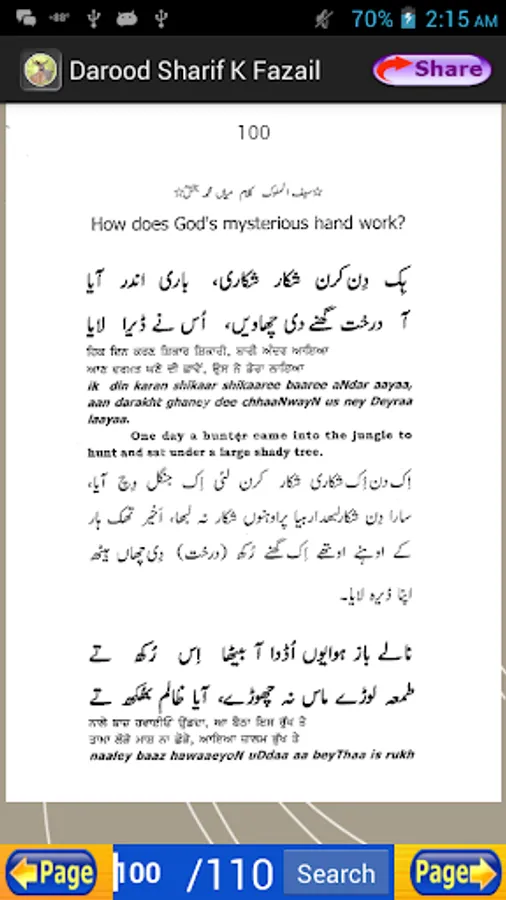 70% 2:15 AM
Darood Sharif K Fazail Share
100
☆سیف الملوک کلام میاں محمد بخش☆
How does God's mysterious hand work?
ہِک دِن کرن شکار شکاری، باری اندر آیا
آ درخت گھنے دی چھاویں، اُس نے ڈیرا لایا
ਹਿਕ ਦਿਨ ਕਰਣ ਸ਼ਿਕਾਰ ਸ਼ਿਕਾਰੀ, ਬਾਰੀ ਅੰਦਰ ਆਇਆ
ਆਣ ਦਰਖ਼ਤ ਘਣੇ ਦੀ ਛਾਵੇਂ, ਉਸ ਨੇ ਡੇਰਾ ਲਾਇਆ
ik din karan shikaar shikaaree baaree aNdar aayaa,
aan darakht ghaney dee chhaaNwayN us ney Deyraa
laayaa.
One day a hunter came into the jungle to
hunt and sat under a large shady tree.
اِک دن اِک شکاری شکار کرن لئی اِک جنگل وِچ آیا،
سارا دِن شکار لبھدا رہیا پر اوہنوں شکار نہ لبھا، اَخیر تھک ہار
کے اوہنے اوتھے اِک گھنے رُکھ (درخت) دِی چھاں ہیٹھ
اپنا ڈیرہ لایا۔
نالے باز ہوایوں اُڈدا آ بیٹھا اِس رُکھ تے
طمعہ لوڑے ماس نہ چھوڑے، آیا ظالم بھُکھ تے
ਨਾਲੇ ਬਾਜ਼ ਹਵਾਈਓਂ ਉੱਡਦਾ, ਆ ਬੈਠਾ ਇਸ ਰੁੱਖ ਤੇ
ਤਾਮਾ ਲੋੜੇ ਮਾਸ ਨਾ ਛੋੜੇ, ਆਇਆ ਜ਼ਾਲਮ ਭੁੱਖ ਤੇ
naaley baaz hawaaeyoN uDdaa aa beyThaa is rukh
Page 100 /110 Search Page